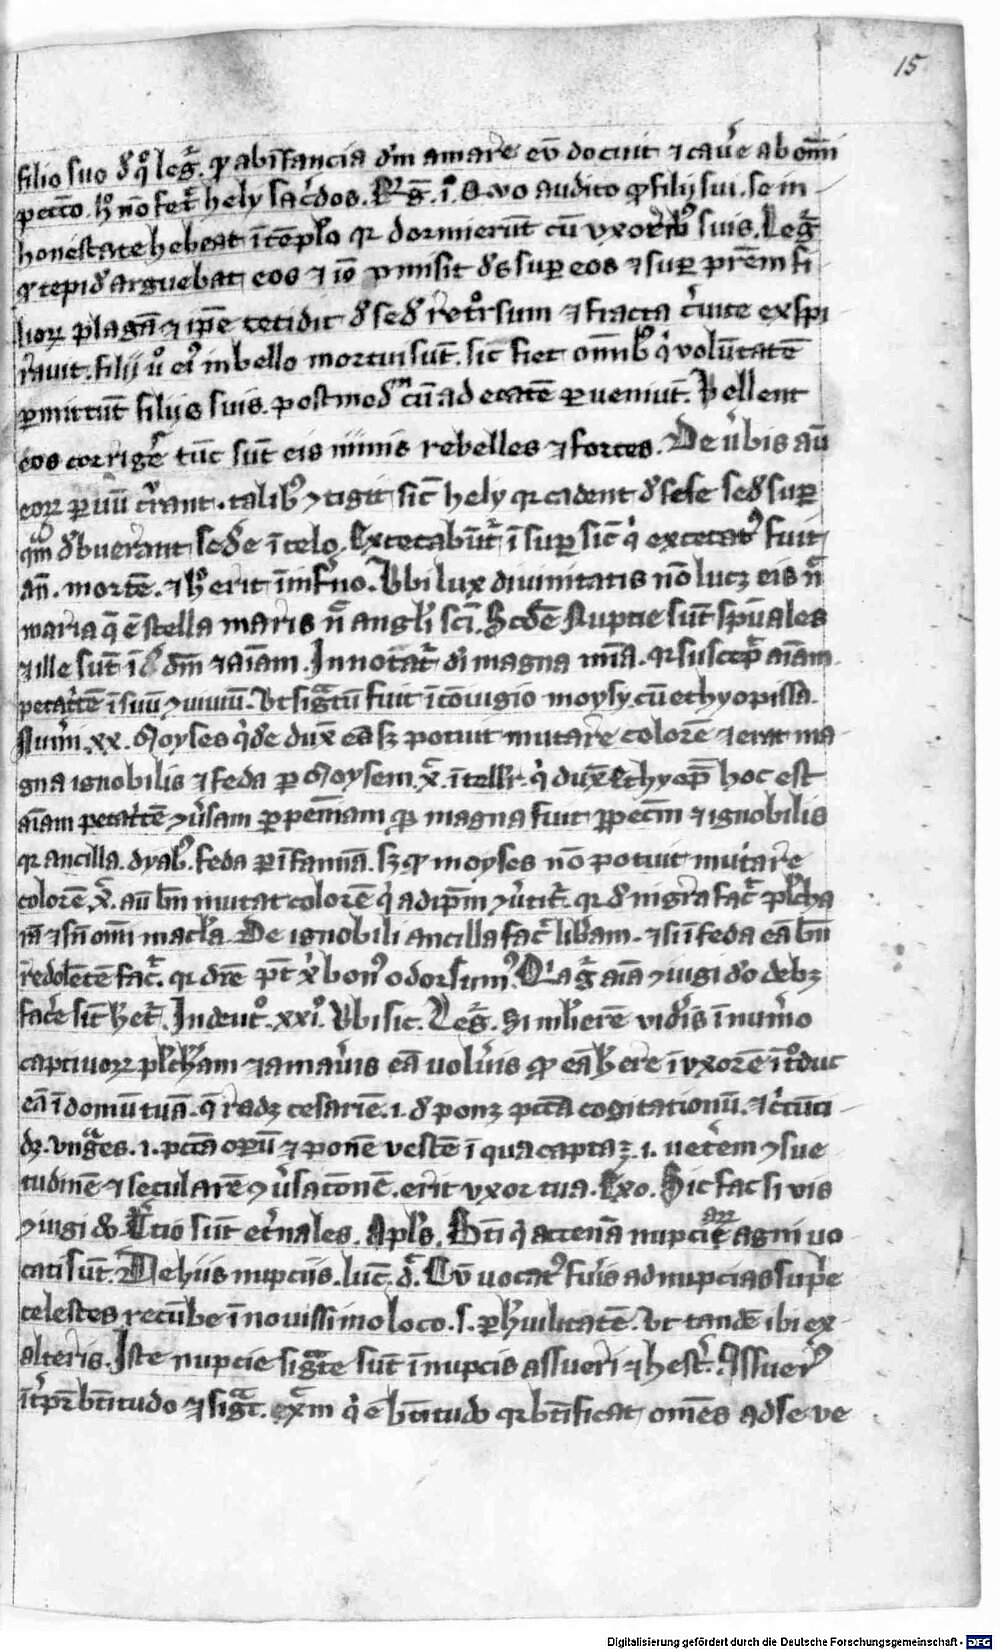 15
filio suo d' q° leg͛. qͥ ab infancia dm̄ amare eū docuit ⁊ cau'e ab om̄i
pccō. h° nō fec̄ hely sac̓dos. Rͤg. i°. audito qͥ filij sui. se in
honestate hēbeāt ī tēplo qr dormierūt cū vxorib; suis. Leg͛
qͥ tepid' arguebat eos ⁊ iō ꝑmisit d's suꝑ eos ⁊ suꝑ prēm fi
lioꝝ plagā ⁊ ip̄e cecidit d' sed' ret°rsum ⁊ fracta c̓uice exspi
rauit. filij u° ei9 in bello mortui sūt. sic fiet om̄ib; qͥ volūtatē
ꝑmittūt filijs suis. postmod' cū ad etatē ꝑueniūt. Vellent
eos corrig̓e tūc sūt eis nimis rebelles ⁊ fortes. De v̓bis aū
talib; ꝯtigit sic hely qr cadent d' sese sed' suꝑ
qm̄ d'buerant sed'e ī celo. Excecabūt͛ īsuꝑ sic qͥ excecat9 fuit
an̄. mortē. ⁊ h° erit ī inf̓no. Vbi lux diuinitatis nō lucꝫ eis n̄
maria q̄ ē stella maris n̄ angl'i sc̄i. Scd'e Nuptie sūt sp̄uales
⁊ ille sūt īt̓ dm̄ ⁊ aīam. In notat͛ d'i magna mīa. qr suscep͛ aīam
pecat̓cē ī suū ꝯuiuiū. Vt sig͛tū fuit ī cōiugio moysy cū ethyopissa.
Num̓. xx. Moyses qͥd'e dux̄ eā sꝫ potuit mutare colorē ⁊ erat ma
gna ignobilis ⁊ feda ꝑ Moysem. x͛. ītell'r. qͥ dux̄ Ethyop̄ hoc est
aīam pecat̓cē ꝯu̓sam ꝑ penīam q̄ magna fuit ꝑ pec̄m ⁊ ignobilis
qr ancilla. dyab'. feda ꝑ ī famīa. sꝫ qͥ moyses nō potuit mutare
colorē. x͛. aū bn̄ mutat colorē qͥ ad ip̄m ꝯu̓tit͛. qr d' nigra fac͛ pl'cha
rā ⁊ sn̄ om̄i mac'la. De ignobili ancilla fac͛ lib̓am. ⁊ si ī feda eā bn̄
redolētē fac͛. qr dr̄e pt̄ x̓ bon9 odor sum9. aīa ꝯiugi d'o debꝫ
fac̓e sic h̓et͛. In deut°. xxi°. Vbi sic. Leg͛. Si mlierē vid̓is ī num̓o
captiuoꝝ pl'cham ⁊ amau̓is eā volu̓is qͥ eā h̓ere ī vxorē īt°duc
eā ī domū tuā. q̄ radꝫ cesariē. i. d' ponꝫ pccā cogitationū. ⁊ c̓cūci
dꝫ. vng͛es. i. pccā opū ⁊ ponē vestē ī qua capta ꝫ. i. uet̓em ꝯsue
tudinē ⁊ secularē ꝯu̓satōnē. erit vxor tua. Exo. Sic fac si vis
ꝯiugi d'o. T̓cio sūt et̓nales. Apl's. Bt̄i qͥ ad cenā nupciaꝝ agni uo
cati sūt. De hiis nupciis. luc̄. d͛. Cū vocat9 fu̓is ad nupcias sup̓e
celestes recūbe ī nouissimo loco. s. ꝑ h'uilitatē. Vt tandē ibi ex
alteris. Iste nupcie sig͛te sūt ī nupciis assueri ⁊ hest̓. Assuer9
īt̓pr̄ btītudo ⁊ sig͛t. x͛m qͥ ē btītudo qr btīficat om̄es ad se ve
Digitalisierung gefördert durch die Deutsche Forschungsgemeinschaft - DFG